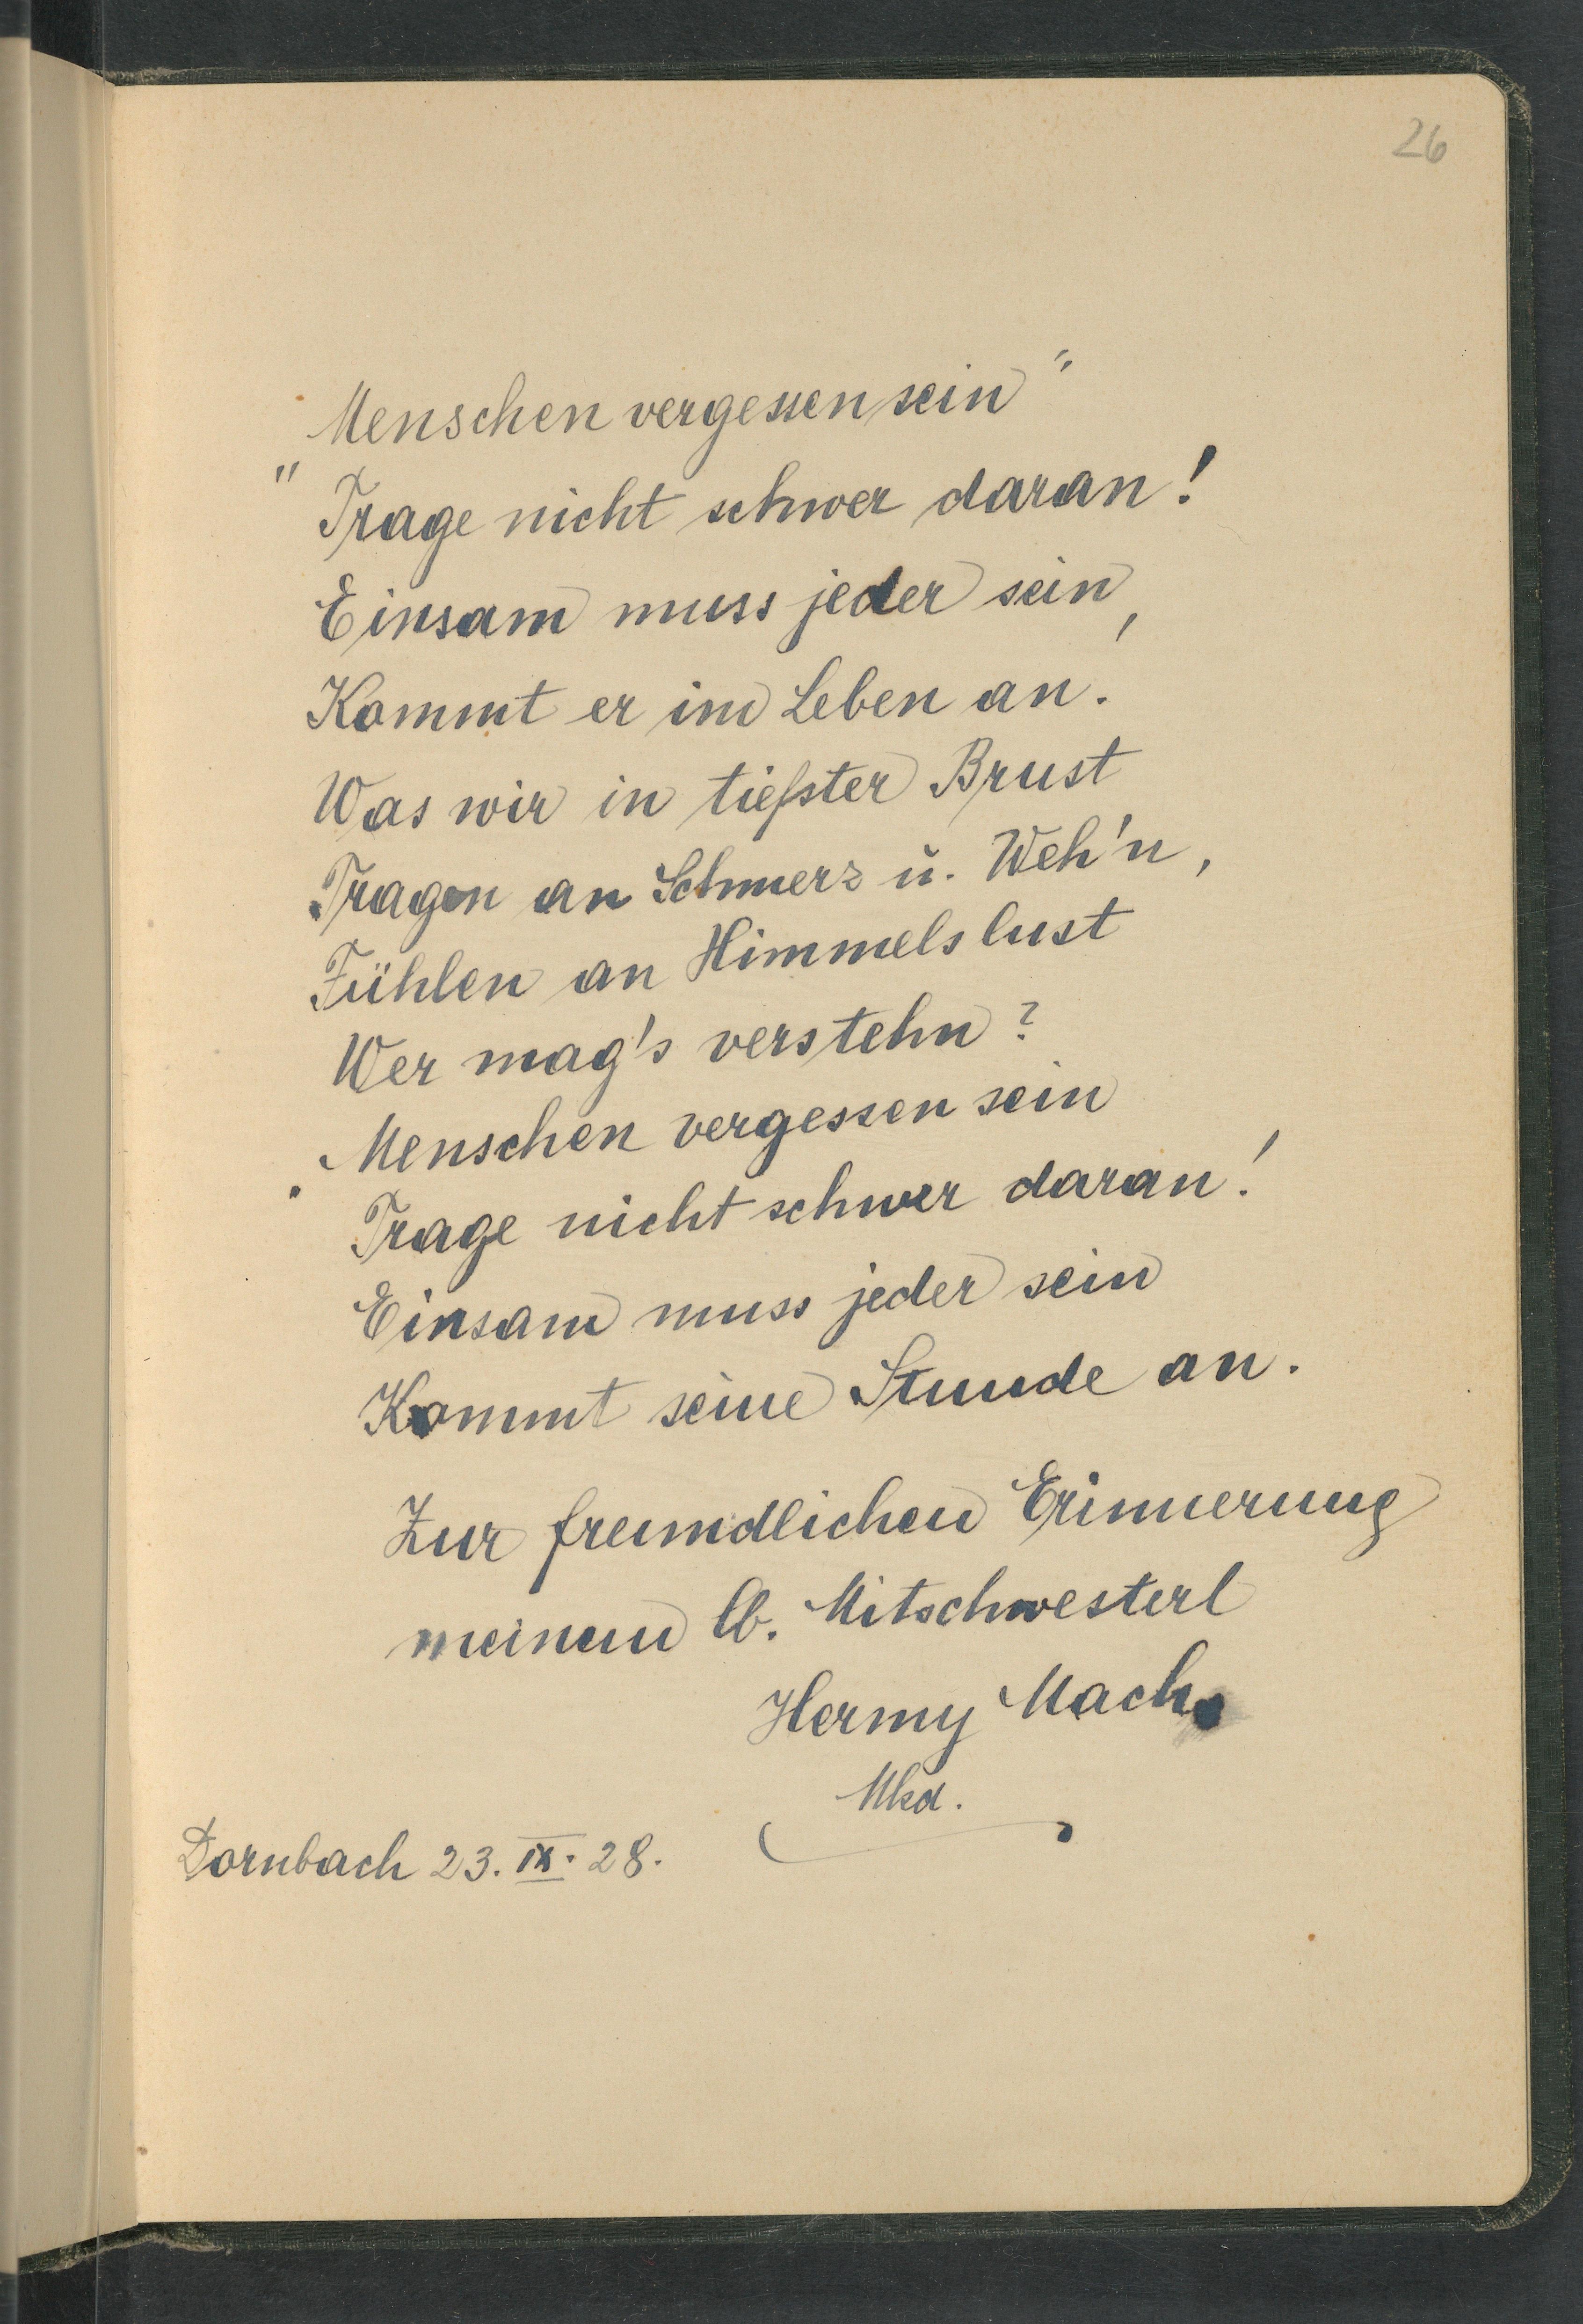 26
„Menschen vergessen sein"
Trage nicht schwer daran!
Einsam muss jeder sein,
Kommt er im Leben an.
Was wir in tiefster Brust
Tragen an Schmerz ü. Weh'n,
Fühlen an Himmelslust
Wer mag's verstehn?
„Menschen vergessen sein
Trage nicht schwer daran!
Einsam muss jeder sein
Kommt seine Stunde an.
Zur freundlichen Erinnerung
meinem lb. Mitschwesterl
Hermy Mach.
Mkd.
Dornbach 23. IX. 28.